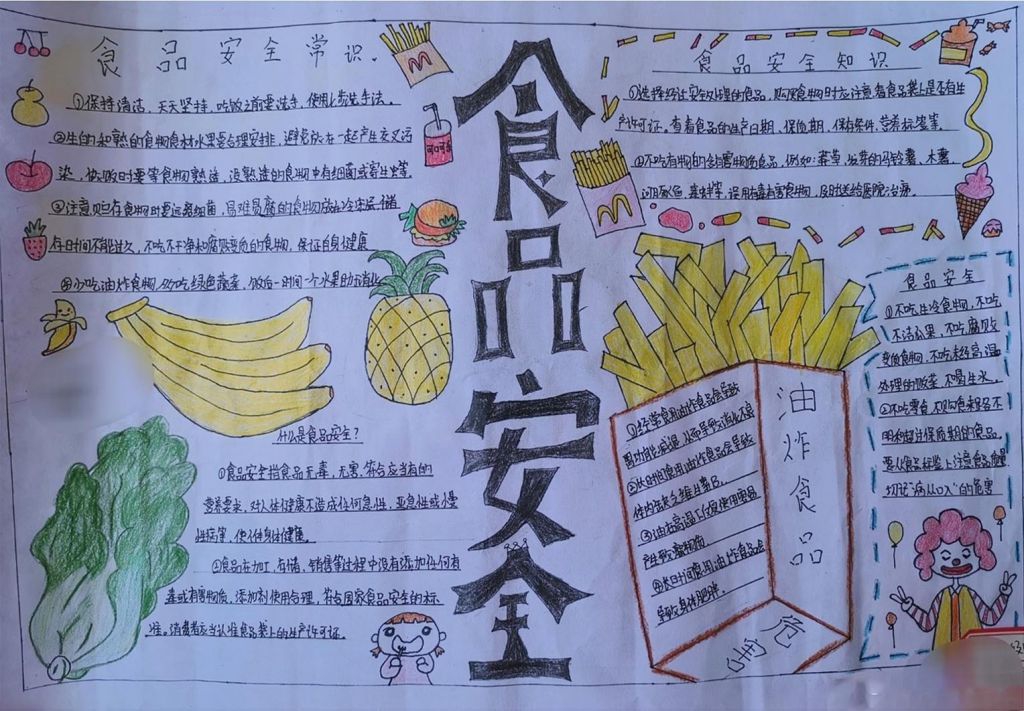 食品安全常识.
①保持清洁，天天坚持，吃饭之前要洗手，使用七步洗手法。
②生的和熟的食物食材水果要合理安排，避免放在一起产生交叉污
染，做饭时要等食物熟透，没熟透的食物中有细菌或寄生虫等.
③注意贮存食物时要远离细菌，易难易腐的食物放在冷冻层储
存时间不能过久，不吃不干净和腐败变色的食物，保证自身健康
④少吃油炸食物，多吃绿色蔬菜，饭后一时间一个水果助消化
什么是食品安全？
①食品安全指食品无毒，无害，符合应当有的
营养要求，对人体健康不造成任何急性，亚急性或慢
性病等，使人体身体健康。
①食品在加工，存储，销售等过程中没有添加任何有
毒或有害物质，添加剂使用合理，符合国家食品安全的标
准。消费者应当认准食品袋上的生产许可证.
食品安全
食品安全知识
①选择经过安全处理的食品，购买食物时应注意看食品袋上是否有生
产许可证。查看食品的生产日期、保质期，保存条件，营养标签等.
②不吃有物的含毒物质食品，例如：毒草，发芽的马铃薯、木薯、
河豚鱼、毒蚌等，误用毒害食物，及时送给医院治病.
油炸食品
危害
①经常食用油炸食品会导致
胃功能减退，从而导致消化不良
②长时间食用油炸食品会导致
体内缺乏维生素B.
③油在高温下反复使用更易
产生致癌物质
④长时间食用油炸食品会
导致身体肥胖.
食品安全
①不吃生冷食物，不吃
不洁瓜果，不吃腐败
变质食物，不吃未经高温
处理的饭菜，不喝生水。
②不吃零食，不购食来路不
明和超过保质期的食品，
要从食品标签上注意食品质量
切记"病从口入"的危害
可口可乐